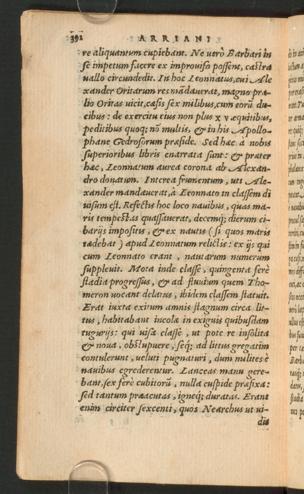 392 ARRIANI
re aliquantum cupiebant. Ne uerò Barbari in
se impetum facere ex improuiso possent, castra
uallo circundedit. In hoc Leonnatus, cui Ale
xander Oritarum res mãdauerat, magno præ
lio Oritas uicit, cæsis sex milibus, cum eorũ du
cibus: de exercitu eius non plus x v æquitibus,
peditibus quoq; nõ multis, & in his Apollo-
phane Gedrosorum præside. Sed hæc à nobis
superioribus libris enarrata sunt: & præter
hæc, Leonnatum aurea corona ab Alexan-
dro donatum. Interea frumentum, uti Ale-
xander mandauerat, à Leonnato in classem di
uisum est. Refectis hoc loco nauibus, quas ma-
ris tempestas quassauerat, decemq; dierum ci-
barijs impositis, & ex nautis (si quos maris
tædebat) apud Leonnatum relictis: ex ijs qui
cum Leonnato erant, nauarum numerum
suppleuit. Mota inde classe, quingenta ferè
stadia progressus, & ad fluuium quem Tho-
meron uocant delatus, ibidem classem statuit.
Erat iuxta exitum amnis stagnum circa lit-
tus, habitabant incolæ in exiguis quibusdam
tugurijs: qui uisa classe, ut pote re insolita
& noua, obstupuere, seq; ad littus gregatim
contulerunt, ueluti pugnaturi, dum milites è
nauibus egrederentur. Lanceas manu gere-
bant, sex ferè cubitorũ, nulla cuspide præfixa:
sed tantum præacutas, igneq; duratas. Erant
enim circiter sexcenti, quos Nearchus ut ui-
dit